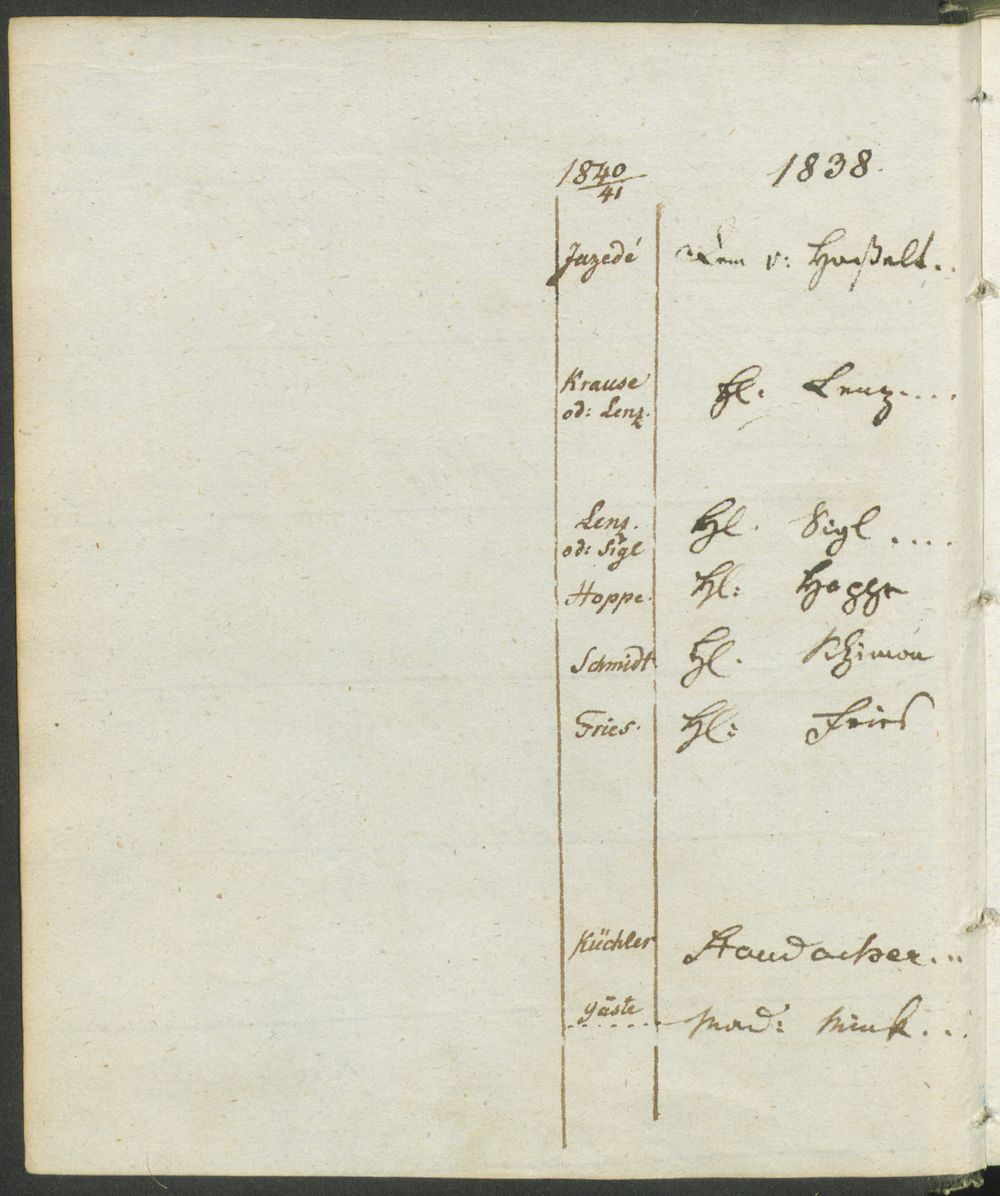 1840/41 1838.
Jazedé Dem v: Haßelt..
Krause
od: Lenz. H: Lenz....
Lenz.
od: Sigl H. Sigl ....
Hoppe. H: Hoppe
Schmidt H. Schimon
Fries. H: Fries
Küchler Staudacher...
gäste Mad: Mink...